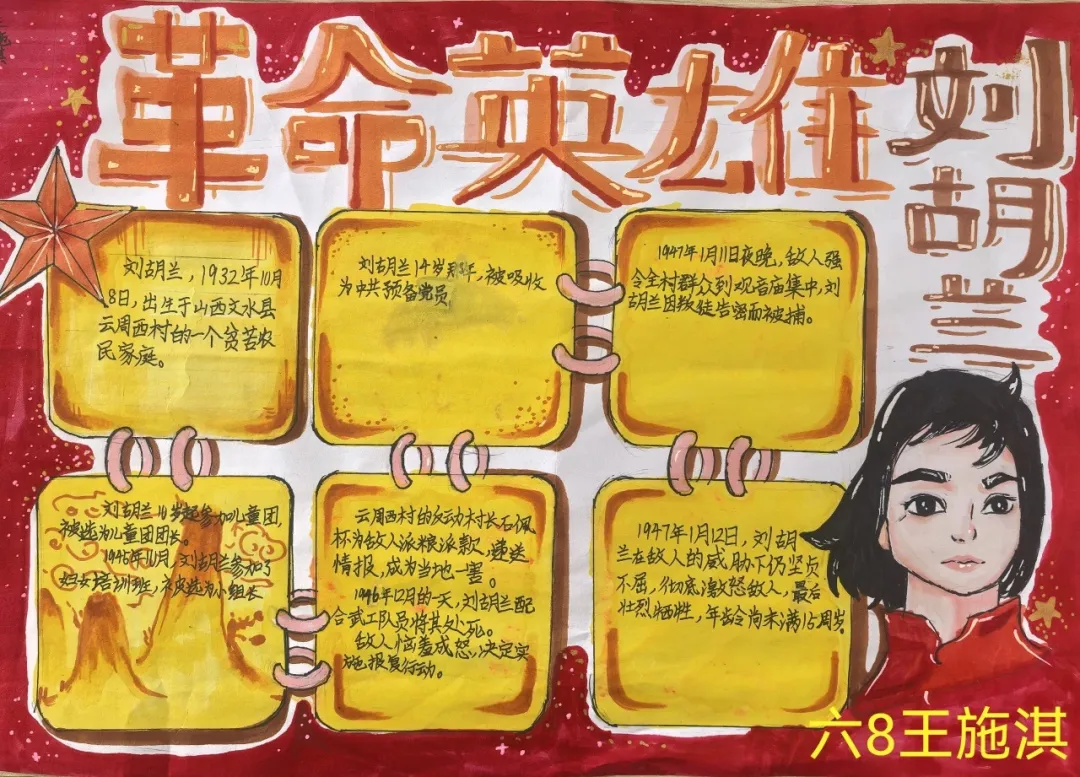 革命英雄刘胡兰
刘胡兰，1932年10月
8日，出生于山西文水县
云周西村的一个贫苦农
民家庭。
刘胡兰14岁那年，被吸收
为中共预备党员
1947年1月11日夜晚，敌人强
令全村群众到观音庙集中，刘
胡兰因叛徒告密而被捕。
刘胡兰10岁起参加儿童团，
被选为儿童团团长。
刘胡兰参加了
妇女培训班，被选为小组长
云周西村的反动村长石佩
怀为敌人派粮派款，递送
情报，成为当地一害。
1946年12月的一天，刘胡兰配
合武工队员将其处死。
敌人恼羞成怒，决定实
施报复行动。
1947年1月12日，刘胡
兰在敌人的威胁下仍坚贞
不屈，彻底激怒敌人，最后
壮烈牺牲，年龄尚未满15周岁。
六8王施淇